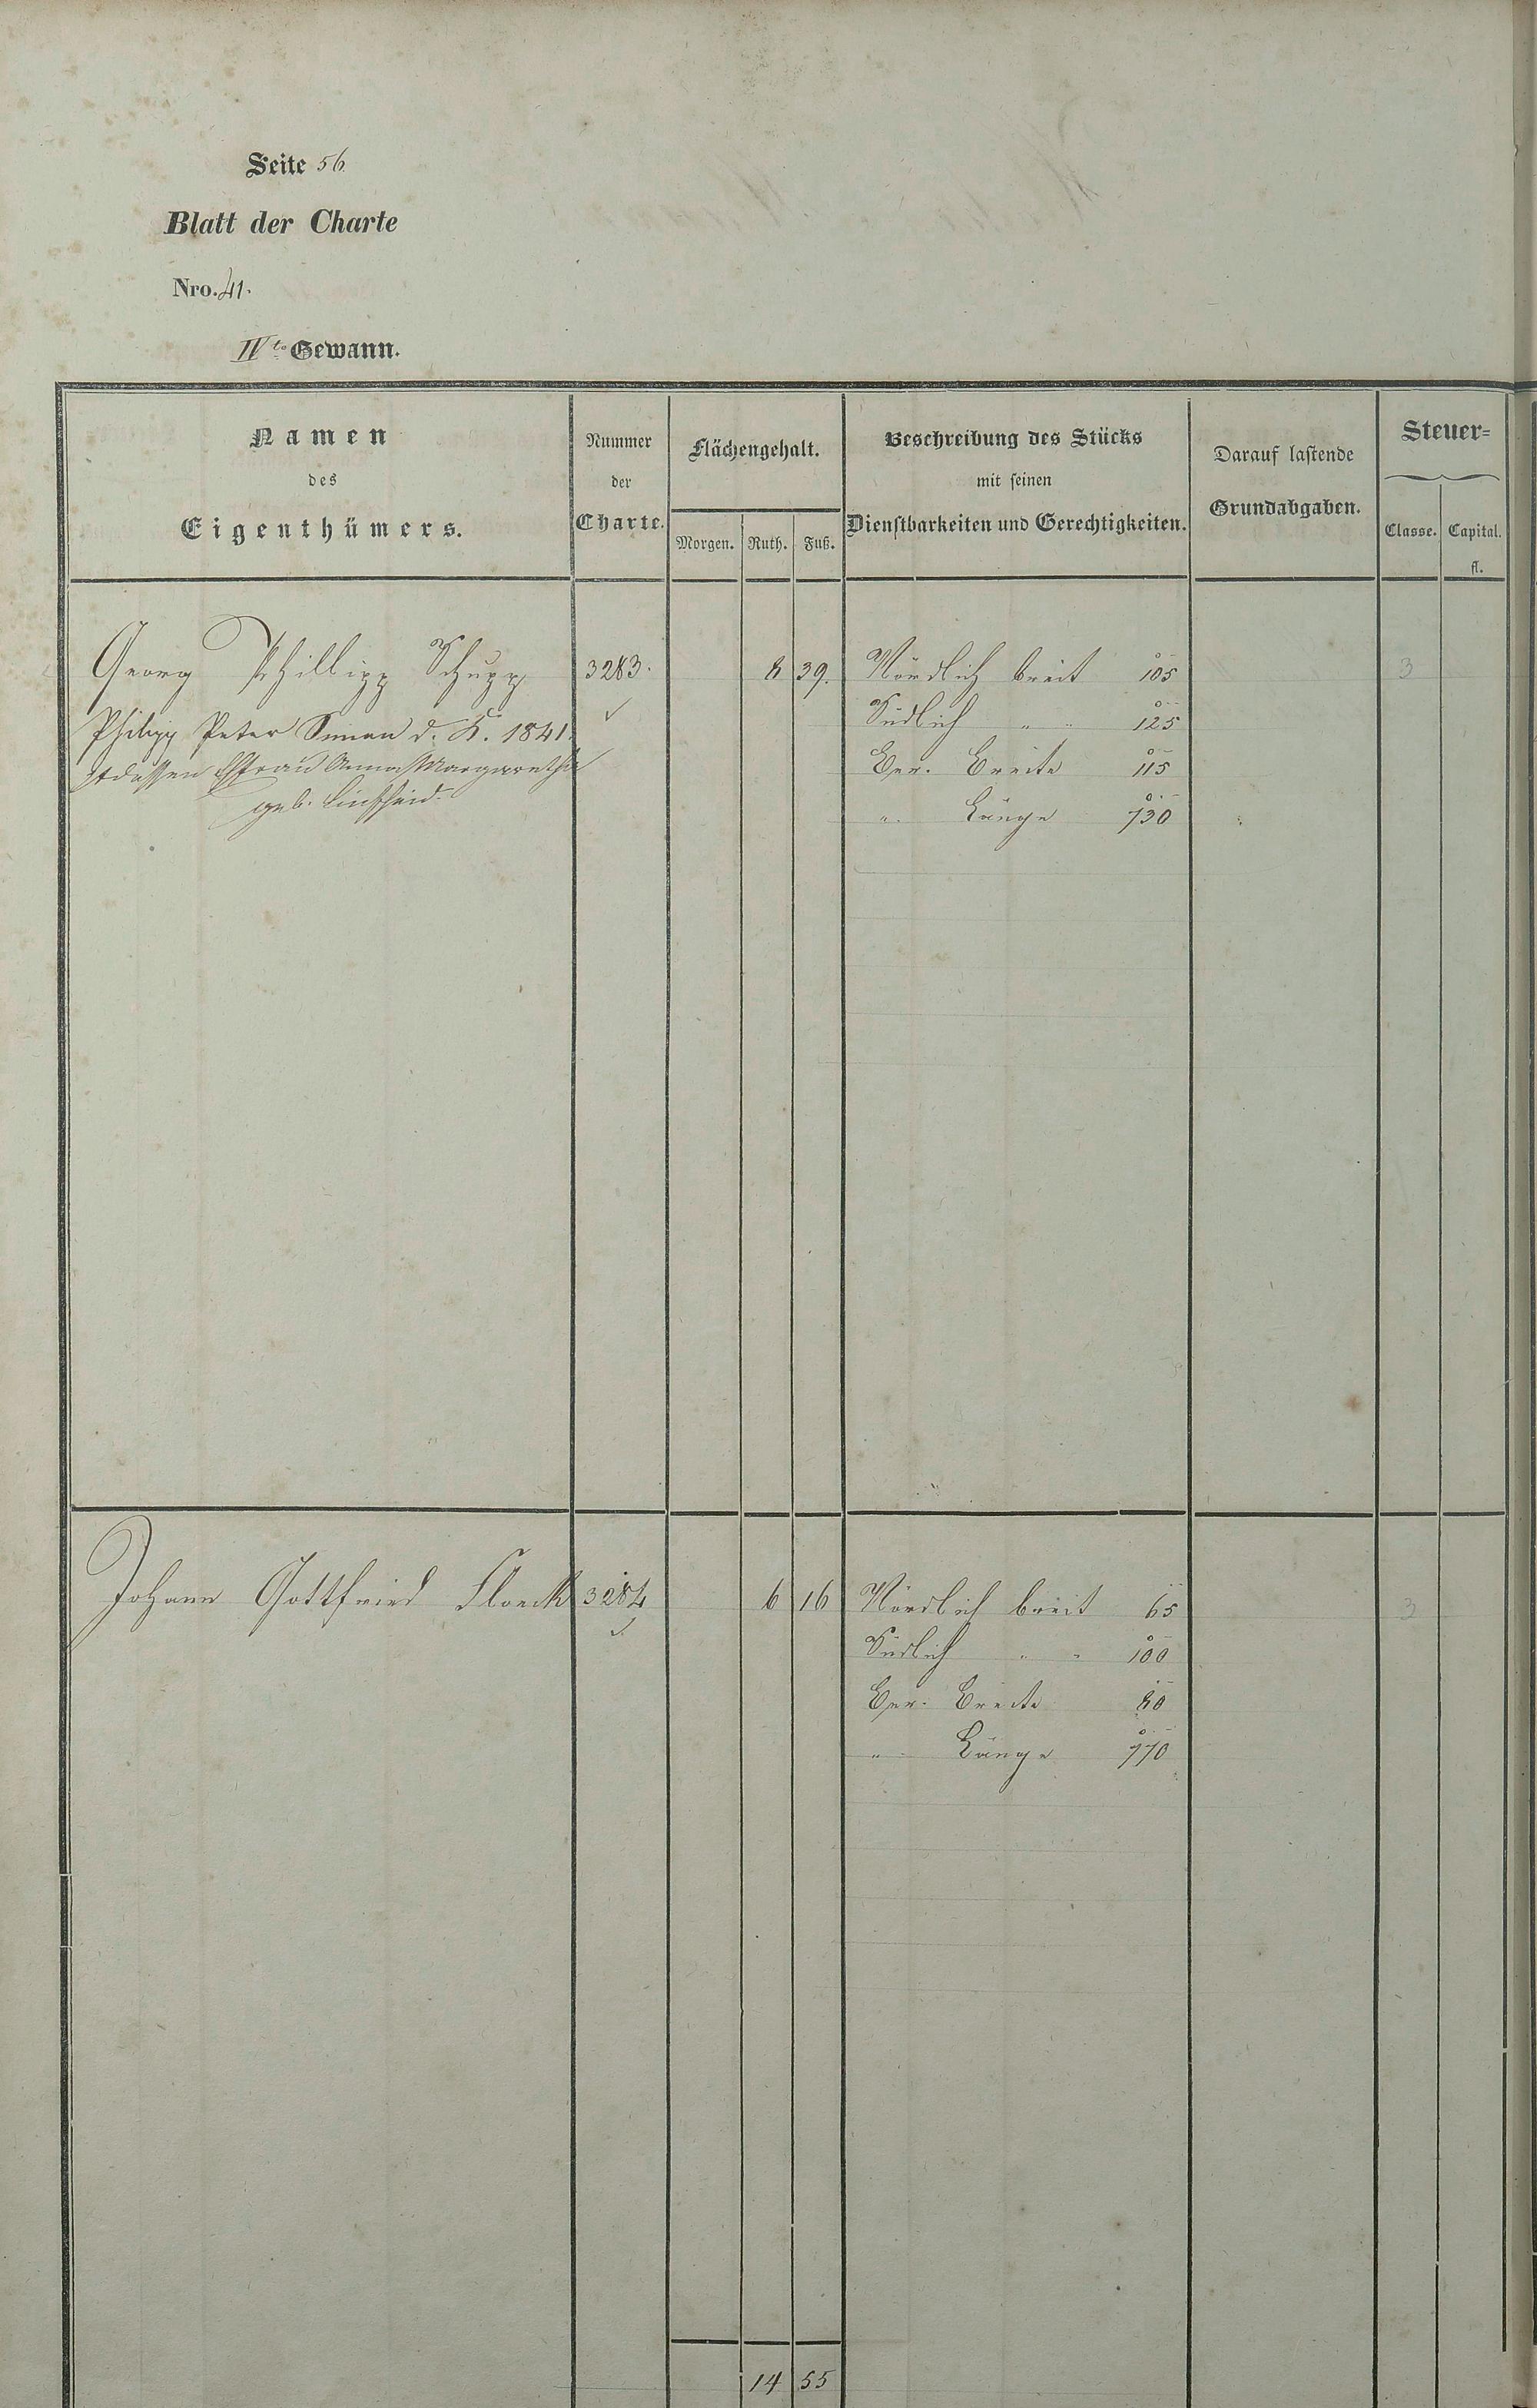 Seite 56
Blatt der Charte
Nro. 41.
IVte Gewann.
Namen
des
Eigenthümers.
Nummer
der
Charte.
Flächengehalt.
Morgen. Ruth. Fuß.
Beschreibung des Stücks
mit seinen
Dienstbarkeiten und Gerechtigkeiten.
Darauf lastende
Grundabgaben.
Steuer=
Classe. Capital.
fl.
Georg Phillipp Schupp 3283. 8 39. Nördlich breit 105 3
Philipp Peter Simon d. K. 1841. Südlich " " 125
dessen Ehfrau Anna Margaretha Ber. Breite 115
geb.
" Länge 730
Johann Gottfried Floeck 3284 6 16 Nördlich breit 65 3
Südlich " " 100
Ber. Breite 80
" Länge 770
14 55